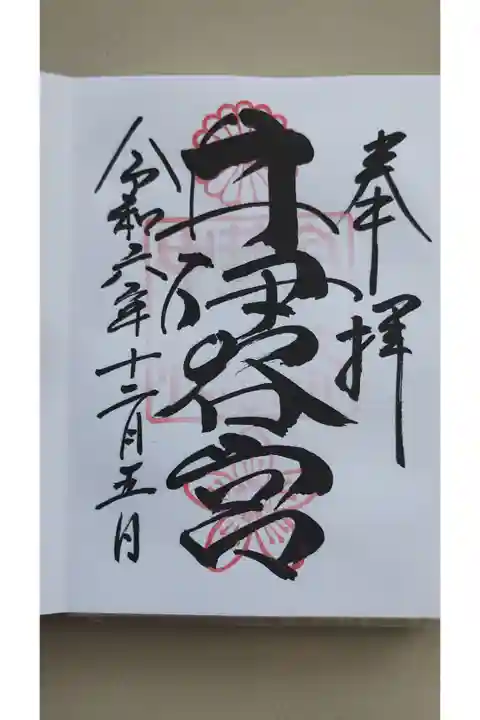 奉拝
井伊谷宮
令和六年十二月五日